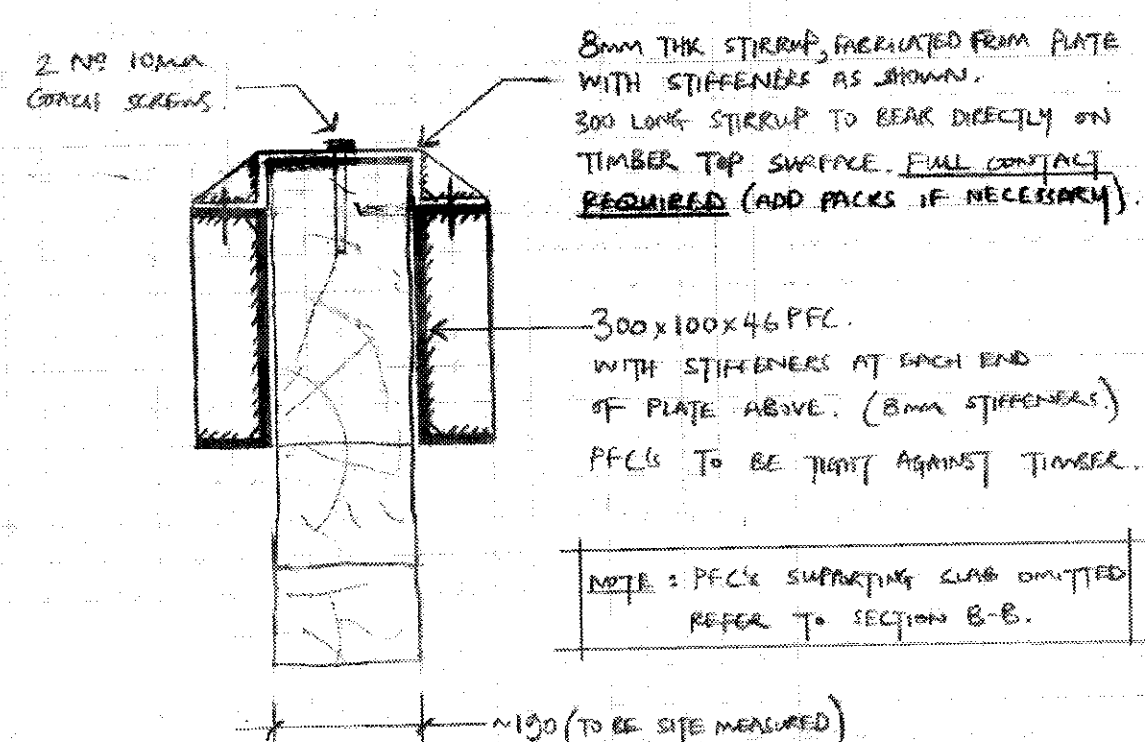 2 Nº 10mm
COACH SCREWS.
8mm THK STIRRUP, FABRICATED FROM PLATE
WITH STIFFENERS AS SHOWN.
300 LONG STIRRUP TO BEAR DIRECTLY ON
TIMBER TOP SURFACE. FULL CONTACT
REQUIRED (ADD PACKS IF NECESSARY).
300x100x46 PFC.
WITH STIFFENERS AT EACH END
OF PLATE ABOVE. (8mm STIFFENERS.)
PFC's TO BE TIGHT AGAINST TIMBER.
NOTE : PFC's SUPPORTING SLAB OMITTED
REFER TO SECTION B-B.
~190 (TO BE SITE MEASURED)